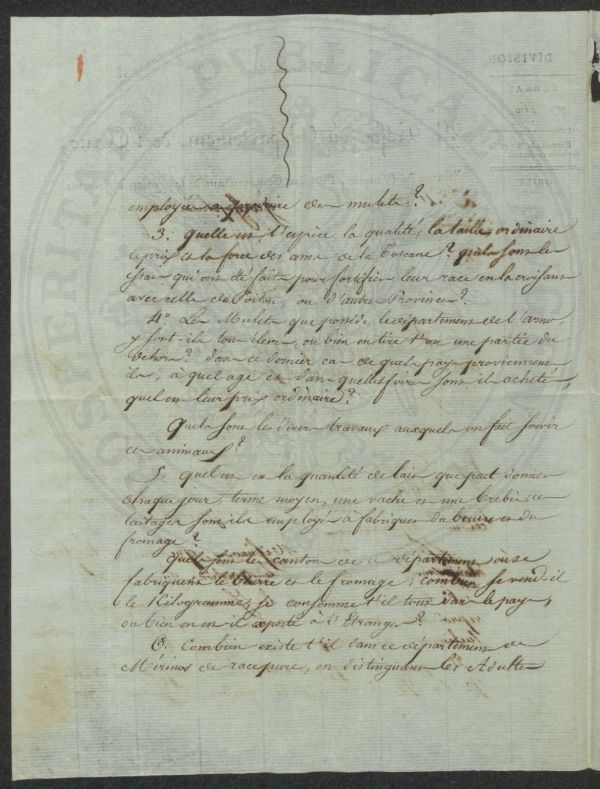 employée à produire des mulets?
3. quelle est l'espèce, la qualité, la taille ordinaire
le prix et la force des anes de la Toscane? quels sont les
essais qu'on a fait pour fortifier leur race en la croisant
avec celle du Poitou, ou d'autre Province?
4° Les Mulets que possède le département de l'arno,
y sont-ils tous élevés, ou bien en tire t'on une partie du
dehors? dans ce dernier cas de quel pays proviennent
ils, à quel age et dans quelles foires sont ils achetés,
quel est leur prix ordinaire?
Quels sont les divers travaux auxquels on fait servir
ces animaux?
5. quel est la quantité de lait que peut donner
chaque jour, terme moyen, une vache et une brebis; ce
laitage sont ils employés à fabriquer du beurre et du
fromage?
Quels sont les canton de ce département où se
fabriquent le beurre et le fromage; combien se vend-il
le Kilogramme, se consomme t'il tous dans le pays,
ou bien en est-il exporté à l'Etranger?
6. Combien existe t'il dans ce département de
Mérinos de race pure, en distinguant les Adultes
DIVISION
BUREAU